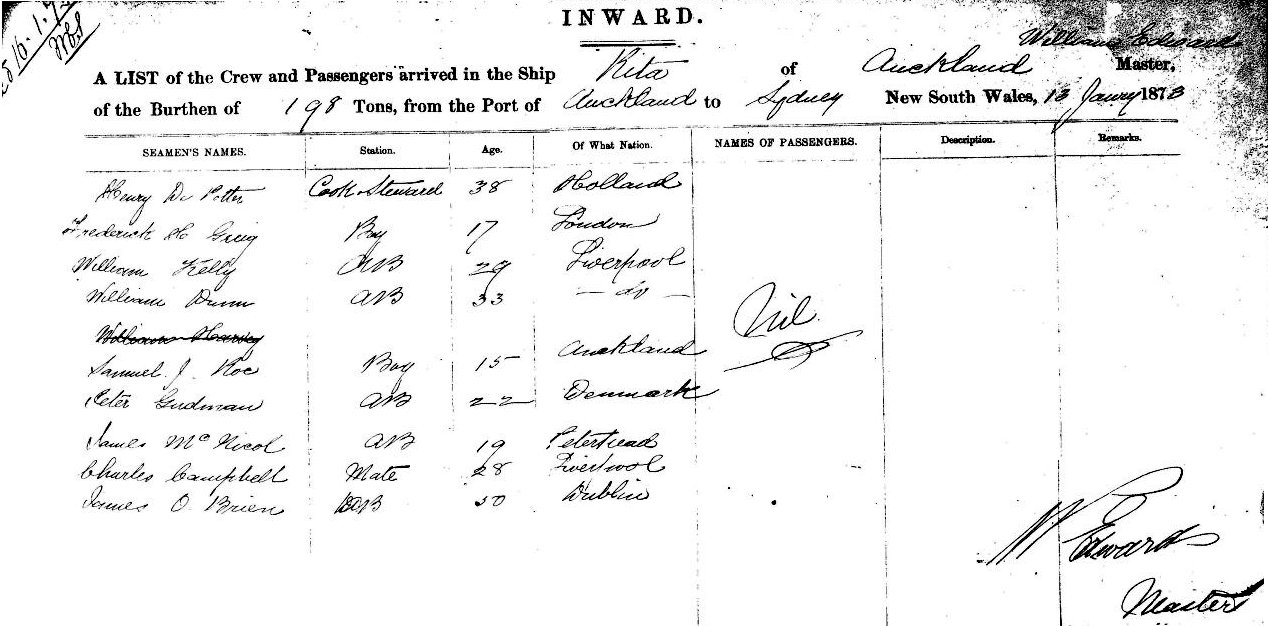 INWARD.
William Edwards
A LIST of the Crew and Passengers arrived in the Ship Rita of Auckland Master,
of the Burthen of 198 Tons, from the Port of Auckland to Sydney New South Wales, 13 Janry 1873
SEAMEN'S NAMES. Station. Age. Of What Nation. NAMES OF PASSENGERS. Description. Remarks.
Henry De Potter Cook & Steward 38 Holland
Frederick H Greig Boy 17 London
William Kelly AB 29 Liverpool
William Dunn AB 33 — do —
Nil
William Harvey
Samuel J. Roe Boy 15 Auckland
Peter Gudman AB 22 Denmark
James McNicol AB 19 Peterhead
Charles Campbell Mate 28 Liverpool
James O Brien AB 50 Dublin
W Edwards
Master